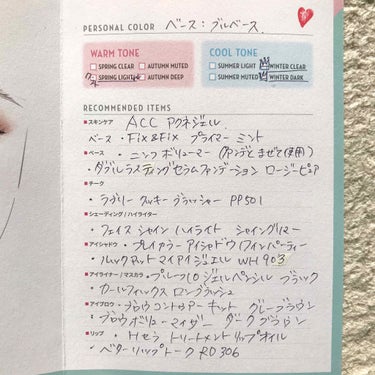 PERSONAL COLOR ベース：ブルベース.
WARM TONE
SPRING CLEAR AUTUMN MUTED
SPRING LIGHT AUTUMN DEEP
COOL TONE
SUMMER LIGHT WINTER CLEAR
SUMMER MUTED WINTER DARK
RECOMMENDED ITEMS
■スキンケア ACC アクネジェル.
ベース・Fix&Fix プライマー ミント
■ベース ・ニンフ ボリューマー (ファンデとまぜて使用)
・ダブルラスティングセラムファンデーション ロージーピュア
■チーク
・ラブリー クッキー ブラッシャー PP501
■シェーディング / ハイライター
・フェイス シャイン ハイライト シャイングリマー
■アイシャドウ ・プレイカラーアイシャドウ (ワインパーティー
・ルック アット マイアイ ジュエル WH903
■アイライナー / マスカラ ・プルーフ10 ジェルペンシル ブラック
カールフィックス ロングラッシュ
■アイブロウ ・ブロウコントゥアーキット グレーブラウン
・ブロウ ボリューマイザー ダークブラウン
■リップ ・Hセラ トリートメント リップオイル
・ベターリップトーク RD306